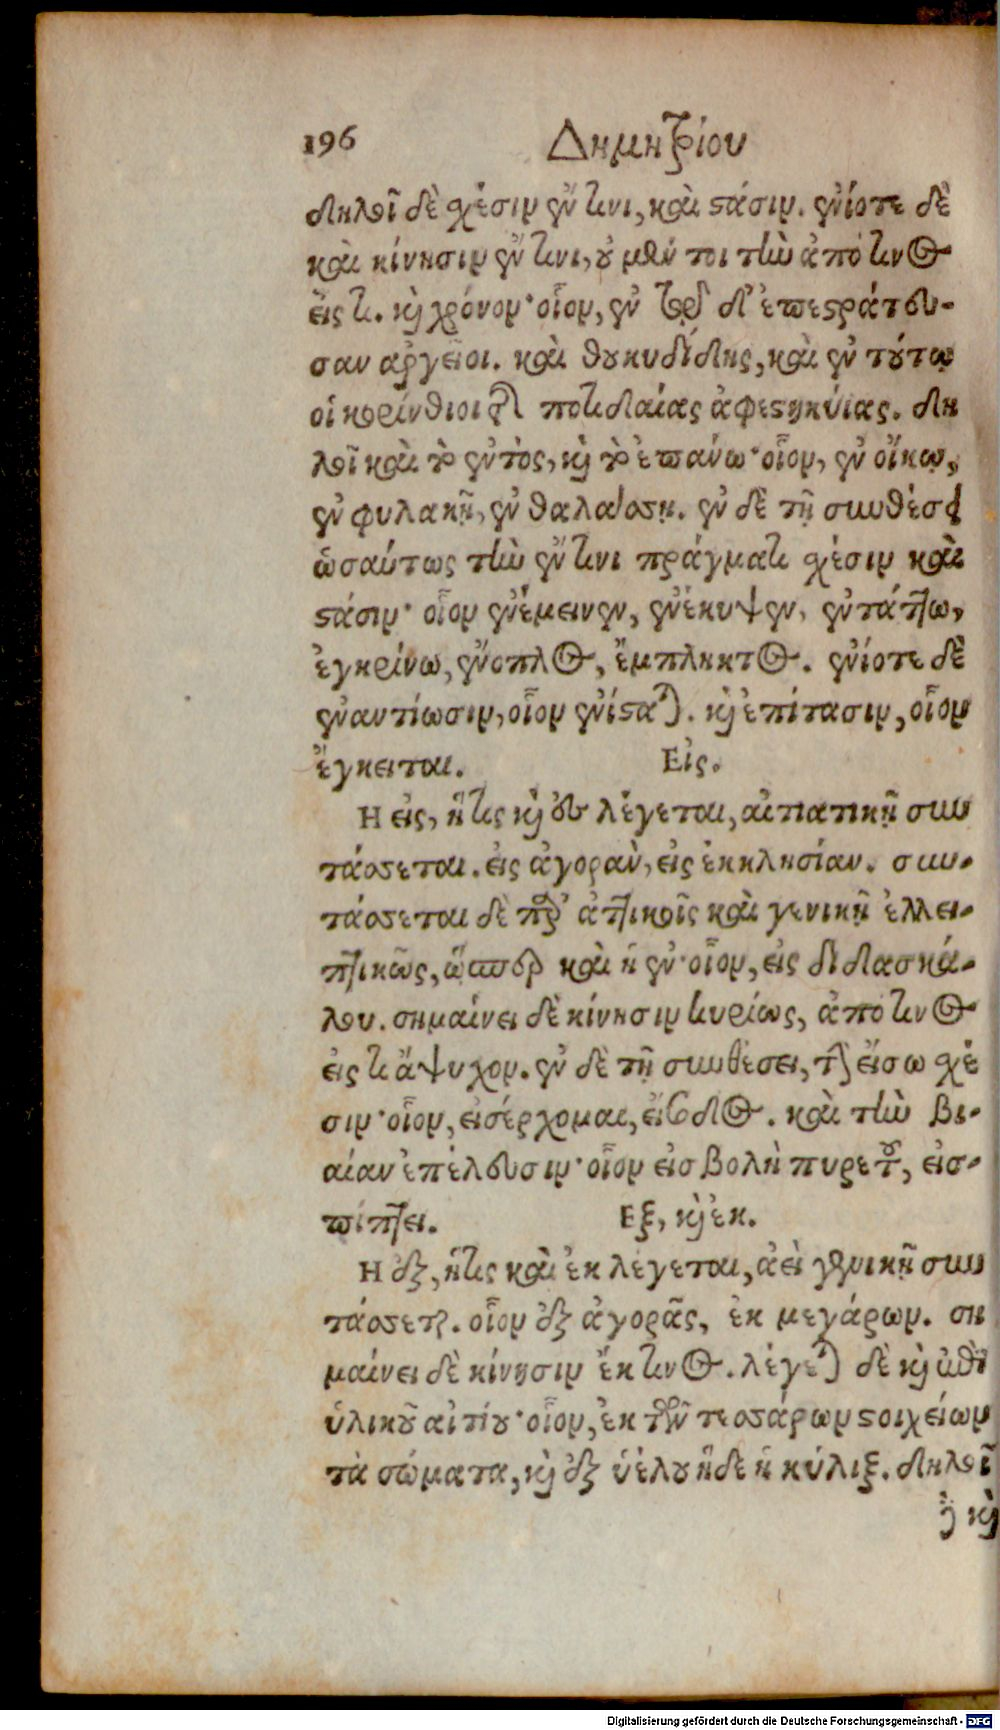 196 Δημητρίου
δηλοῖ δὲ χέσιν ἔν τινι, καὶ στάσιν. ἐνίοτε δὲ
καὶ κίνησιν ἔν τινι, οὐ μέν τοι τὴν ἀπό τινος
εἴς τι. καὶ χρόνον· οἷον, ἐν ᾧ δ' ἐπεστράτευ-
σαν ἀργεῖοι. καὶ θουκυδίδης, καὶ ἐν τούτῳ
οἱ κορίνθιοι τῆς ποτιδαίας ἀφεστηκύιας. δη
λοῖ καὶ τὸ ἐντὸς, καὶ τὸ ἐπάνω· οἷον, ἐν οἴκῳ,
ἐν φυλακῇ, ἐν θαλάσσῃ. ἐν δὲ τῇ συνθέσει
ὡσαύτως τὴν ἔν τινι πράγματι χέσιν καὶ
στάσιν· οἷον ἐνέμεινεν, ἐνέκυψεν, ἐντάττω,
ἐγκρίνω, ἔνοπλος, ἔμπληκτος. ἐνίοτε δὲ
ἐναντίωσιν, οἷον ἐνίσταται. καὶ ἐπίτασιν, οἷον
ἔγκειται. Εἰς.
Η εἰς, ἥτις καὶ ἐς λέγεται, αἰτιατικῇ συν
τάσσεται. εἰς ἀγορὰν, εἰς ἐκκλησίαν. συν-
τάσσεται δὲ παρ' ἀττικοῖς καὶ γενικῇ ἐλλει-
πτικῶς, ὥσπερ καὶ ἡ ἐν· οἷον, εἰς διδασκά-
λου. σημαίνει δὲ κίνησιν κυρίως, ἀπό τινος
εἴς τι ἄψυχον. ἐν δὲ τῇ συνθέσει, τὴν εἴσω χέ
σιν· οἷον, εἰσέρχομαι, εἴσοδος. καὶ τὴν βι-
αίαν ἐπέλευσιν· οἷον εἰσβολὴ πυρετοῦ, εἰσ-
πίπτει. Εξ, καὶ ἐκ.
Η ἐξ, ἥτις καὶ ἐκ λέγεται, ἀεὶ γενικῇ συν
τάσσεται. οἷον ἐξ ἀγορᾶς, ἐκ μεγάρων. ση
μαίνει δὲ κίνησιν ἔκ τινος. λέγεται δὲ καὶ ἀντὶ
ὑλικοῦ αἰτίου· οἷον, ἐκ τῶν τεσσάρων στοιχείων
τὰ σώματα, καὶ ἐξ ὑέλου ἥδε ἡ κύλιξ. δηλοῖ
δὲ καὶ
Digitalisierung gefördert durch die Deutsche Forschungsgemeinschaft - DFG